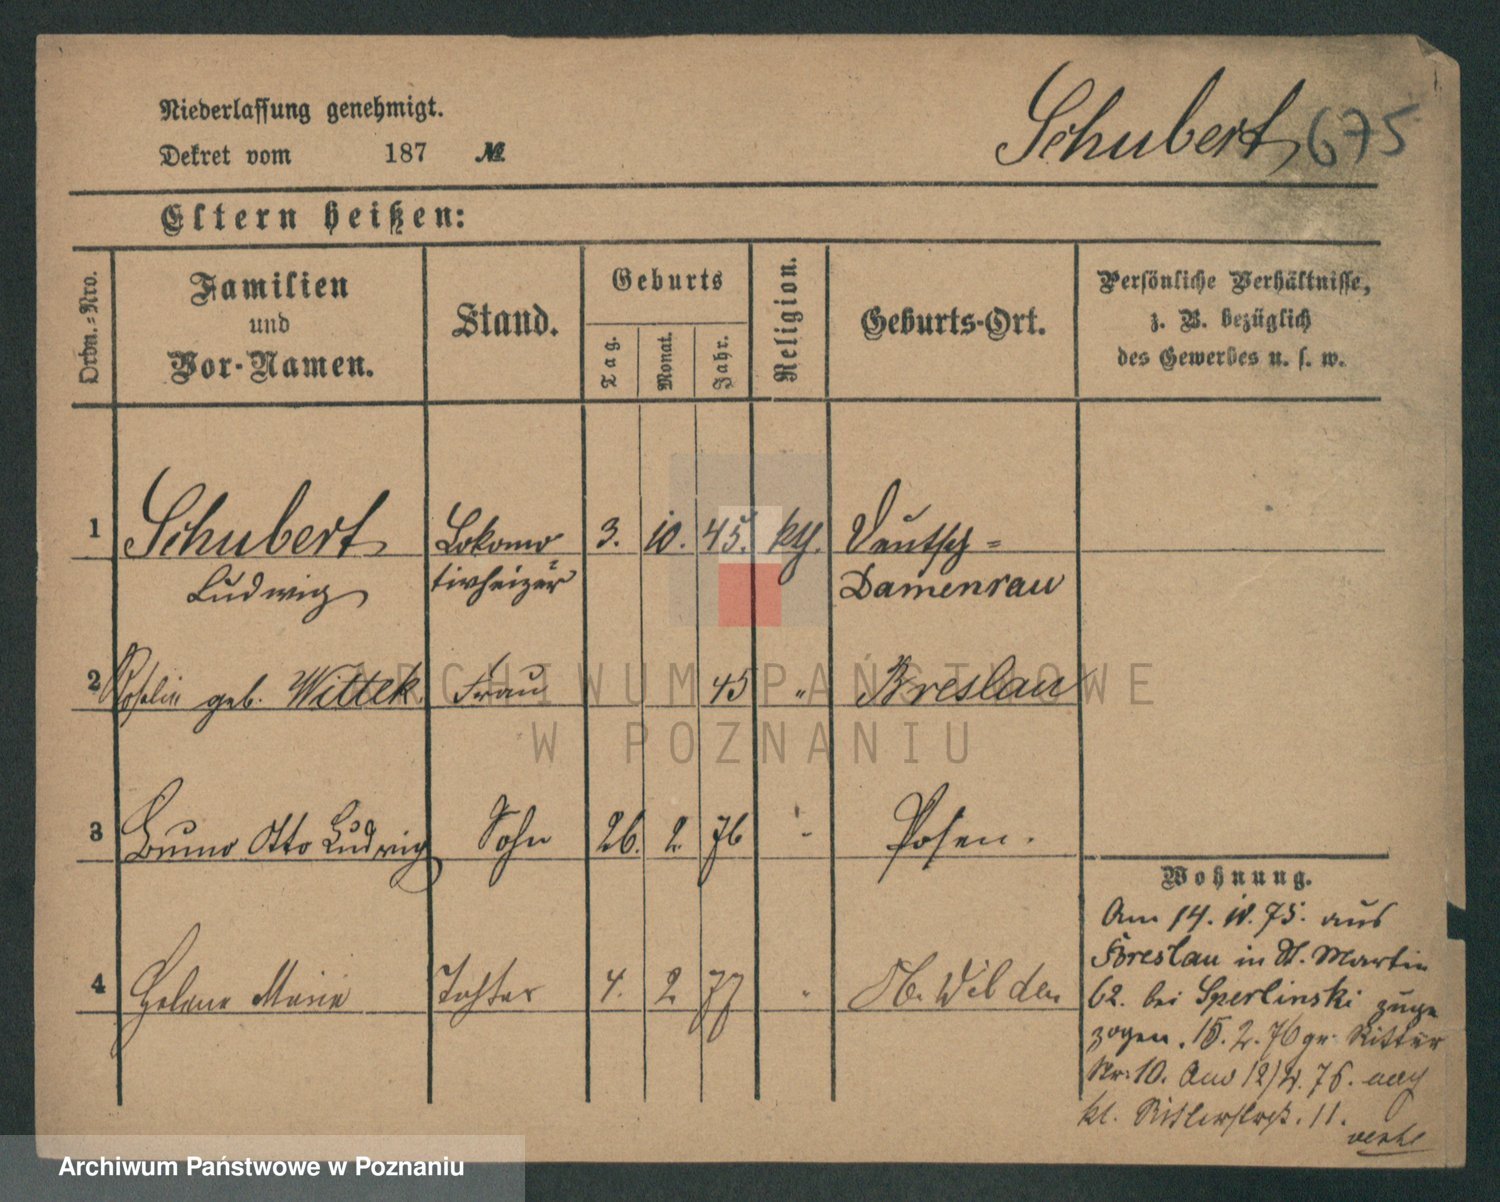 Niederlassung genehmigt.
Dekret vom 187 №
Schubert 675
Eltern heißen:
Ordn.-Nro.
Familien
und
Vor-Namen.
Stand.
Geburts
Tag.
Monat.
Jahr.
Religion.
Geburts-Ort.
Persönliche Verhältnisse,
z. B. bezüglich
des Gewerbes u. s. w.
1 Schubert Lokomo 3. 10. 45. kth. Deutsch=
Ludwig tivheizer Damerau
2 geb. Wittek Frau 45 " Breslau
3 Bruno Otto Ludwig Sohn 26. 2. 76 " Posen.
4 Helene Marie Tochter 4. 2. 77 " Ob. Wilden
Wohnung.
Am 14. 10. 75. aus
Breslau in St. Martin
62. bei Sperlinski zuge
zogen. 15. 2. 76 gr. Ritter
Nr. 10. 76. nach
kl. Ritterstraß. 11.
ARCHIWUM PAŃSTWOWE
W POZNANIU
Archiwum Państwowe w Poznaniu